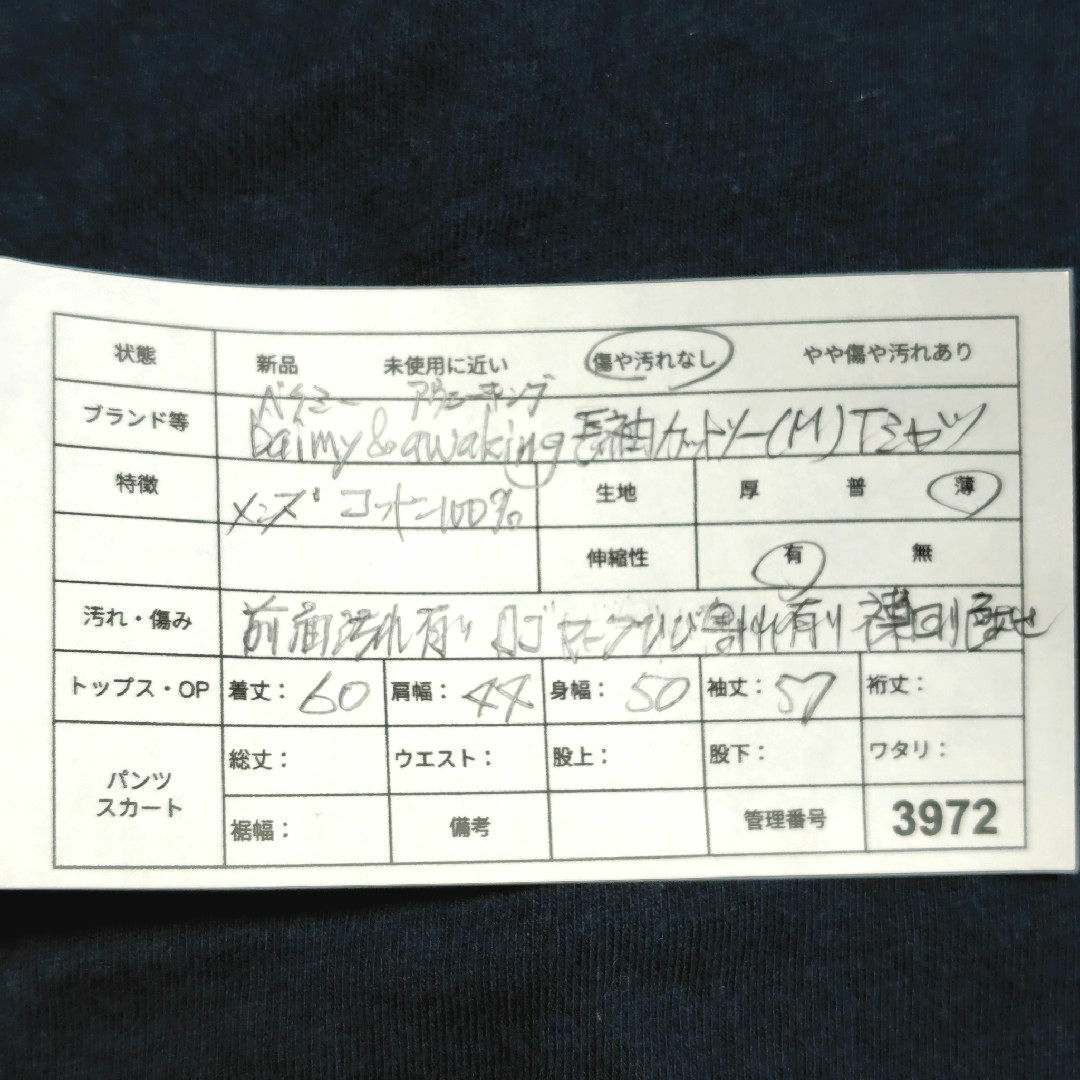 状態 新品 未使用に近い 傷や汚れなし やや傷や汚れあり
ベイミー アウェーキング
ブランド等 Baimy&awaking 長袖カットソー(M)Tシャツ
特徴 メンズ コットン100% 生地 厚 普 薄
伸縮性 有 無
汚れ・傷み 前面汚れ有り ロゴマークひび割れ有り 襟回り
トップス・OP 着丈: 60 肩幅: 44 身幅: 50 袖丈: 57 裄丈:
パンツ スカート
総丈: ウエスト: 股上: 股下: ワタリ:
裾幅: 備考 管理番号 3972